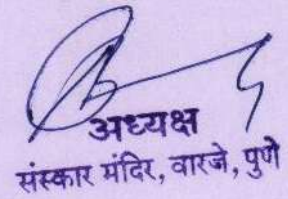 अध्यक्ष
संस्कार मंदिर, वारजे, पुणे